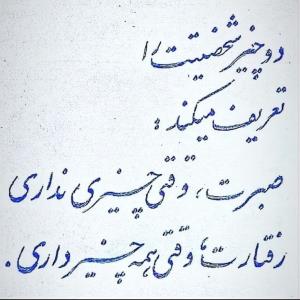 دو چیز شخصیتت را
تعریف میکند :
صبرت، وقتی چیزی نداری
رفتارت، وقتی همه چیز داری.